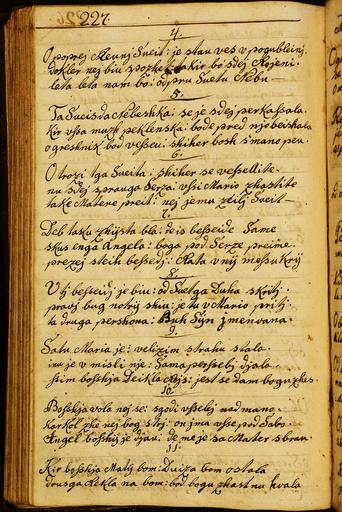 227.
4.
O poprej Reunj Sueit: je stau ves v pogubleinj
dokler nej biu
leta leta nari bo: od pru Suetu Nebu
5.
Ta Sueisda Nebeshka: se je sdej perkasala.
Kir vssa muzh peklenska: bode pred njo beishala
O greshnik bod vesseu: skiher bosh s'mano peu.
6.
O trozi tga Sueita: skiher se vessellite.
nu sdej sprauga Serza: vssi Mario zhastite
take Matere preit: nej jema zeilj Sueit
7.
Deb tasku zhista bla: de is besseide Same
skus enga Angela: boga pod Serze preime.
prezej steih bessedj: Rata v nij messu krij
8.
V tj besseidj je biu: od Suetga Duha skritj.
pravi bug notrij shiu: je tu v Mario pritj.
ta druga pershona: Buh Syn jmenvana.
9.
Satu Maria je: velizim strahu stala.
inu je v misli nje: Sama persebj djala.
ssim boshkja Deikla nojs: jest se dam bogu zhes.
10.
Boshkja vola nej se: sgodi vsselej nad mano.
karkol zhe nej bog stri: on jma vsse pod Sabo
Angel boshkij je djau: de me je sa Mater sbrau.
11.
Kir boshkja Matij bom: Duiza bom ostala
drusga Rekla na bom: bod bogu zhast nu huala